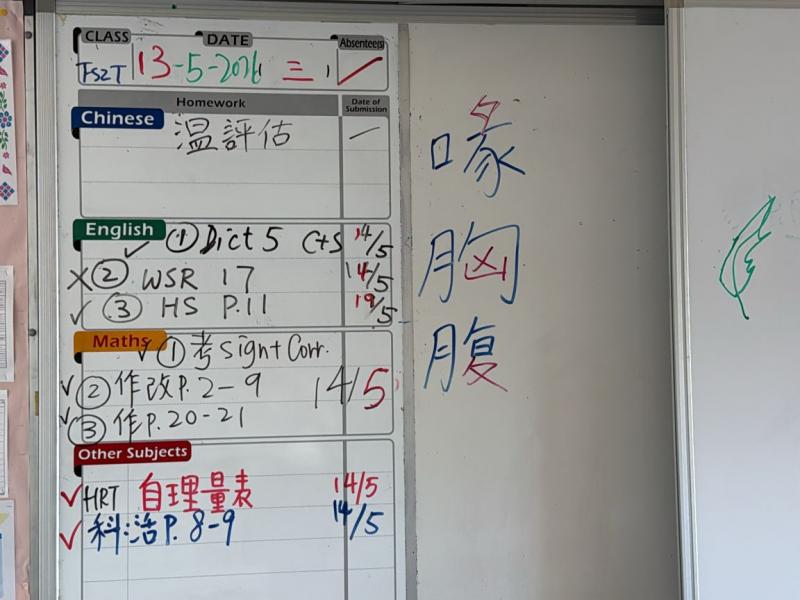 CLASS DATE Absentee(s)
13-5-2026 三
Homework Date of Submission
Chinese
溫評估
English
① Dict 5 C+S 14/5
② WSR 17 14/5
③ HS P.11 19/5
Maths
① 考 sign + Corr.
② 作改P.2-9 14/5
③ 作P.20-21
Other Subjects
HRT 自理量表 14/5
科活P.8-9 14/5
喙
胸
腹